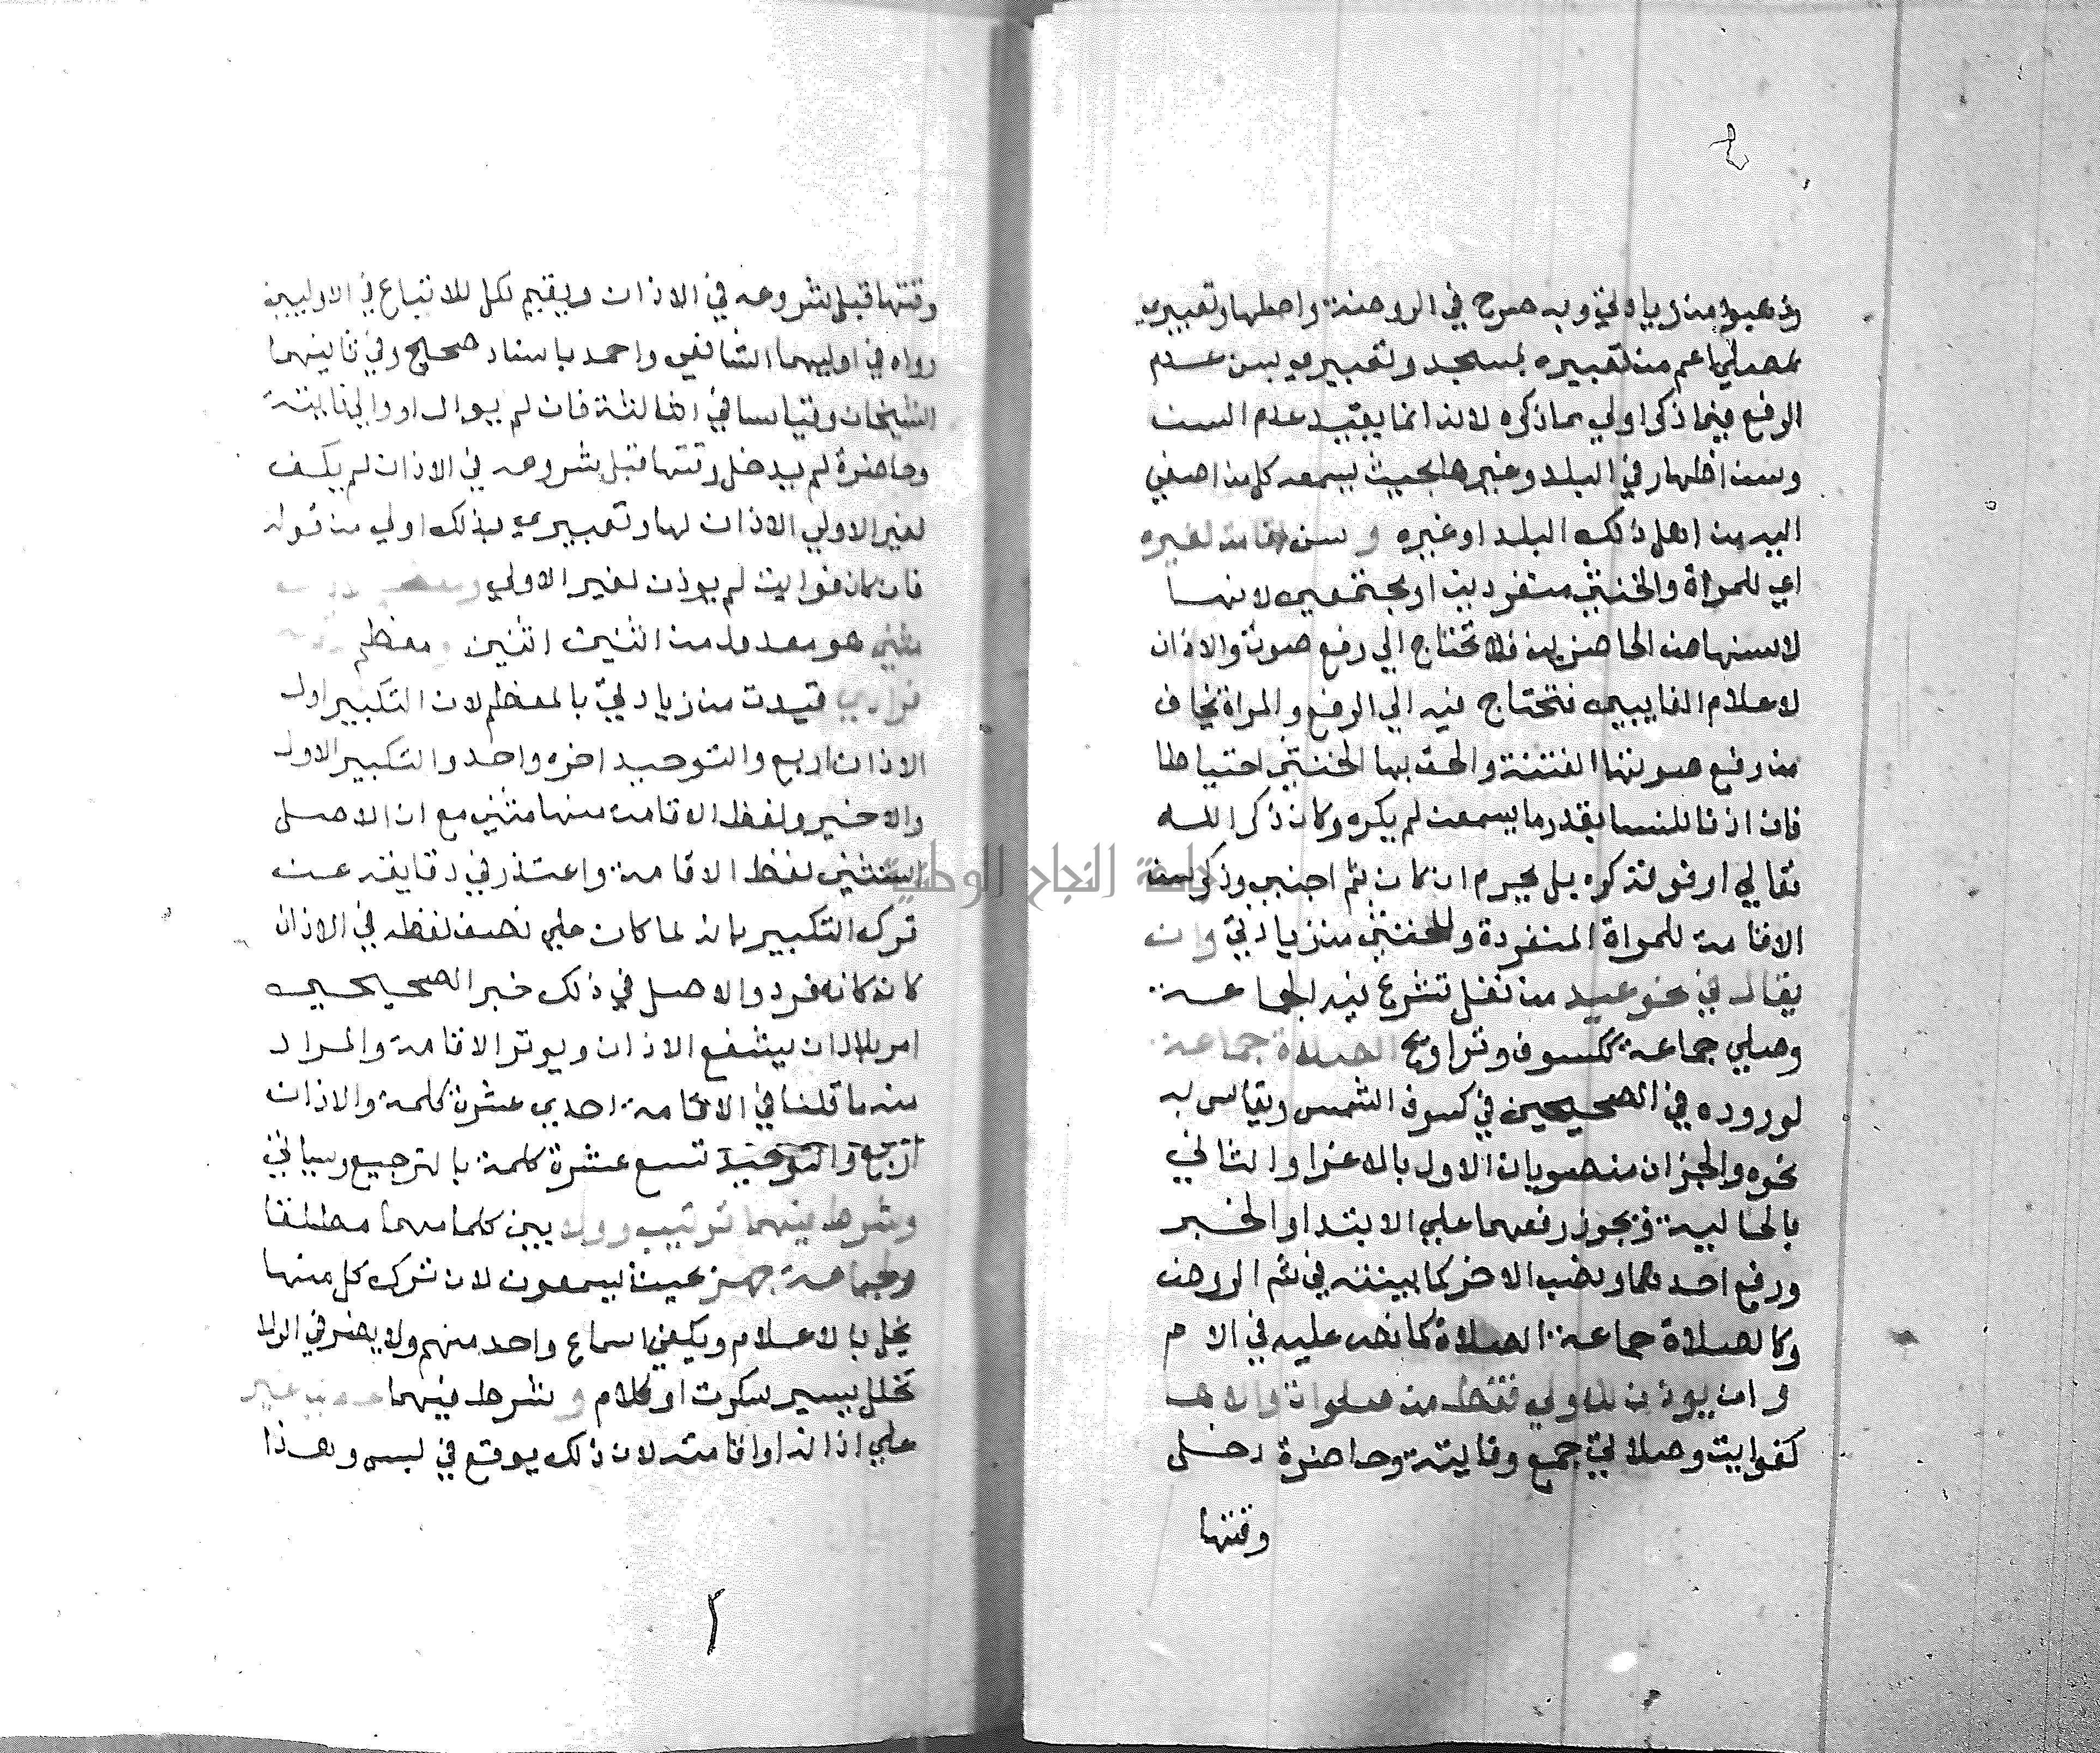 وذهبوا من زيادتي وبه صرح في الروضة واصلها وتعبيري
بمصلي اعم من تعبيره بمسجد وتعبيري بسن عدم
الرفع فيما ذكر اولي مما ذكره لانه انما يفيد عدم السن
وسن اظهار في البلد وغيرها بحيث يسمعه كل من اصغي
اليه من اهل ذلك البلد او غيره و سن اقامة لغيره
اي للمراة والخنثي منفردين او مجتمعين لانها
لاستنهاض الحاضرين فلا تحتاج الي رفع صوت والاذان
لاعلام الغايبين فتحتاج فيه الي الرفع والمراة يخاف
من رفع صوتها الفتنة والحق بها الخنثي احتياطا
فان اذنا للنسا بقدر ما يسمعن لم يكره وكان ذكر الله
تعالي او فوقه كره بل يحرم ان كان ثم اجنبي وذكر سن
الاقامة للمراة المنفردة وللخنثي من زيادتي وان
يقال في نحو عيد من نفل تشرع فيه الجماعة
وصلي جماعة ككسوف وتراويح الصلاة جماعة
لوروده في الصحيحين في كسوف الشمس ويقاس به
نحوه والجزان منصوبان الاول بالاغرا والثاني
بالحالية ويجوز رفعهما علي الابتدا والخبر
ورفع احدهما ونصب الاخر كما بينته في شم الروض
وكالصلاة جماعة الصلاة كما نص عليه في الام
و ان يوذن للاولي فقط من صلوات والاها
كفوايت وصلاتي جمع وفايتة وحاضرة دخل
وقتها
وقتها قبل شروعه في الاذان ويقيم لكل للاتباع في الاوليين
رواه في اوليهما الشافعي واحمد باسناد صحيح وفي ثانيهما
الشيخان وقياسا في الثالثة فان لم يوال او والي فايتة
وحاضرة لم يدخل وقتها قبل شروعه في الاذان لم يكف
لغير الاولي الاذان لها وتعبيري بذلك اولي من قوله
فان كان فوايت لم يوذن لغير الاولي
مثني هو معدول من اثنين اثنين و معظم
فرادي قيدت من زيادتي بالمعظم لان التكبير اول
الاذان اربع والتوحيد اخره واحد والتكبير الاول
والاخير ولفظ الاقامة منها مثني مع ان الاصل
استثني لفظ الاقامة واعتذر في دقايقه عن
ترك التكبير بانه لما كان علي نصف لفظه في الاذان
كان كانه فرد والاصل في ذلك خبر الصحيحين
امر بلال ان يشفع الاذان ويوتر الاقامة والمراد
منه ما قلنا في الاقامة احدي عشرة كلمة والاذان
اربع والتوحيد تسع عشرة كلمة بالترجيع وسياتي
وشرط فيهما ترتيب وولا بين كلماتهما مطلقا
ولجماعة جهر بحيث يسمعون لان ترك كل منها
يخل بالاعلام ويكفي اسماع واحد منهم ولا يضر في الولا
تخلل يسير سكوت او كلام و شرط فيهما عدم بنا غير
علي اذانه او اقامته لان ذلك يوقع في لبس وهذا